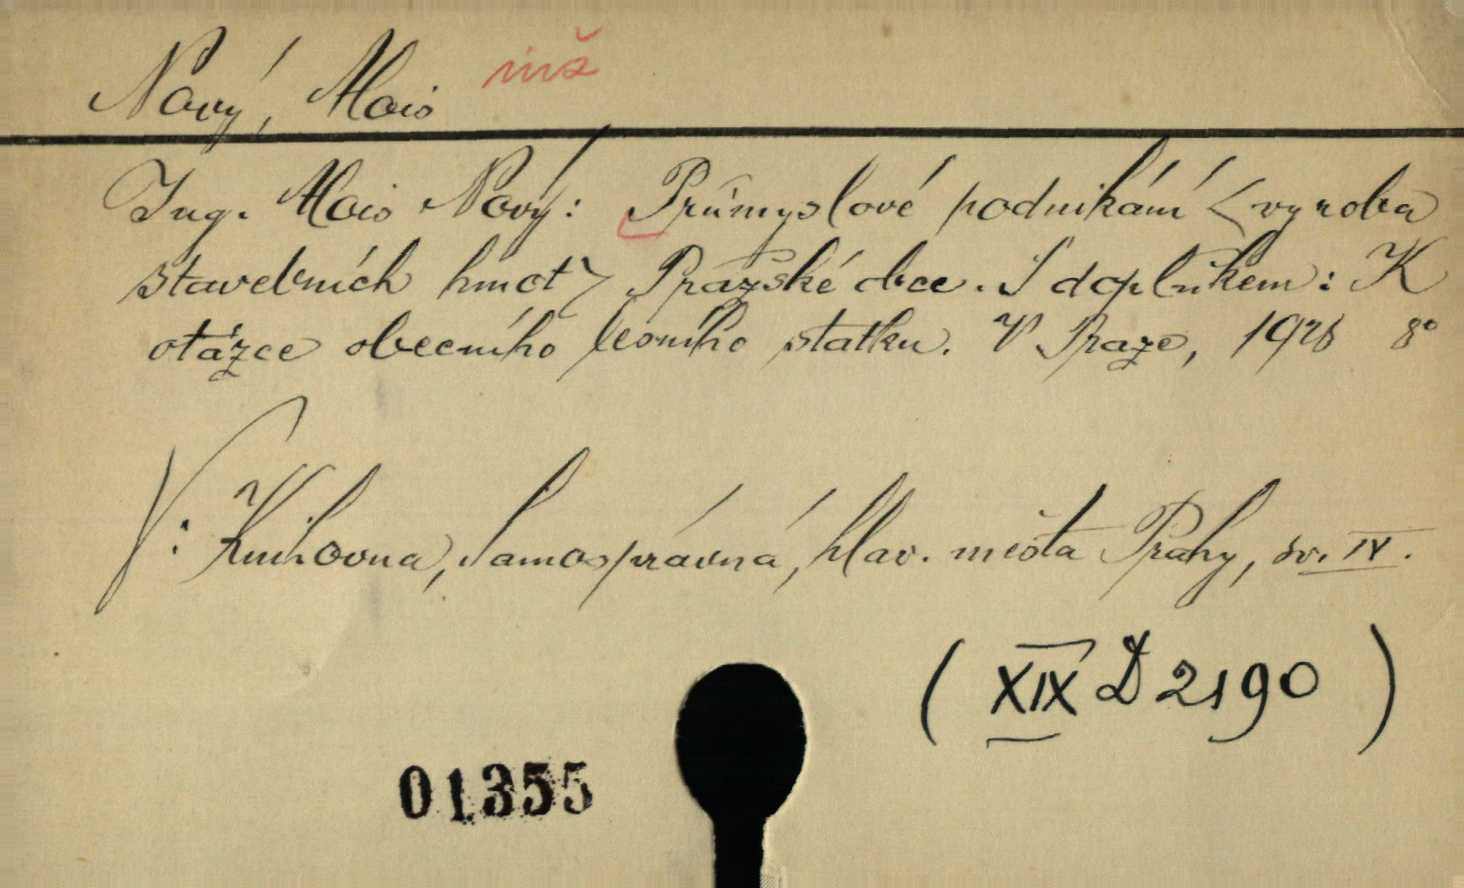 Nový, Alois inž
Ing. Alois Nový: Průmyslové podnikání <vyroba
stavebních hmot> Pražské obce. S doplňkem: K
otázce obecního lesního statku. V Praze, 1928 8°
V: Knihovna, Samosprávná, hlav. města Prahy, sv. IV.
( XIX D 2190 )
01355